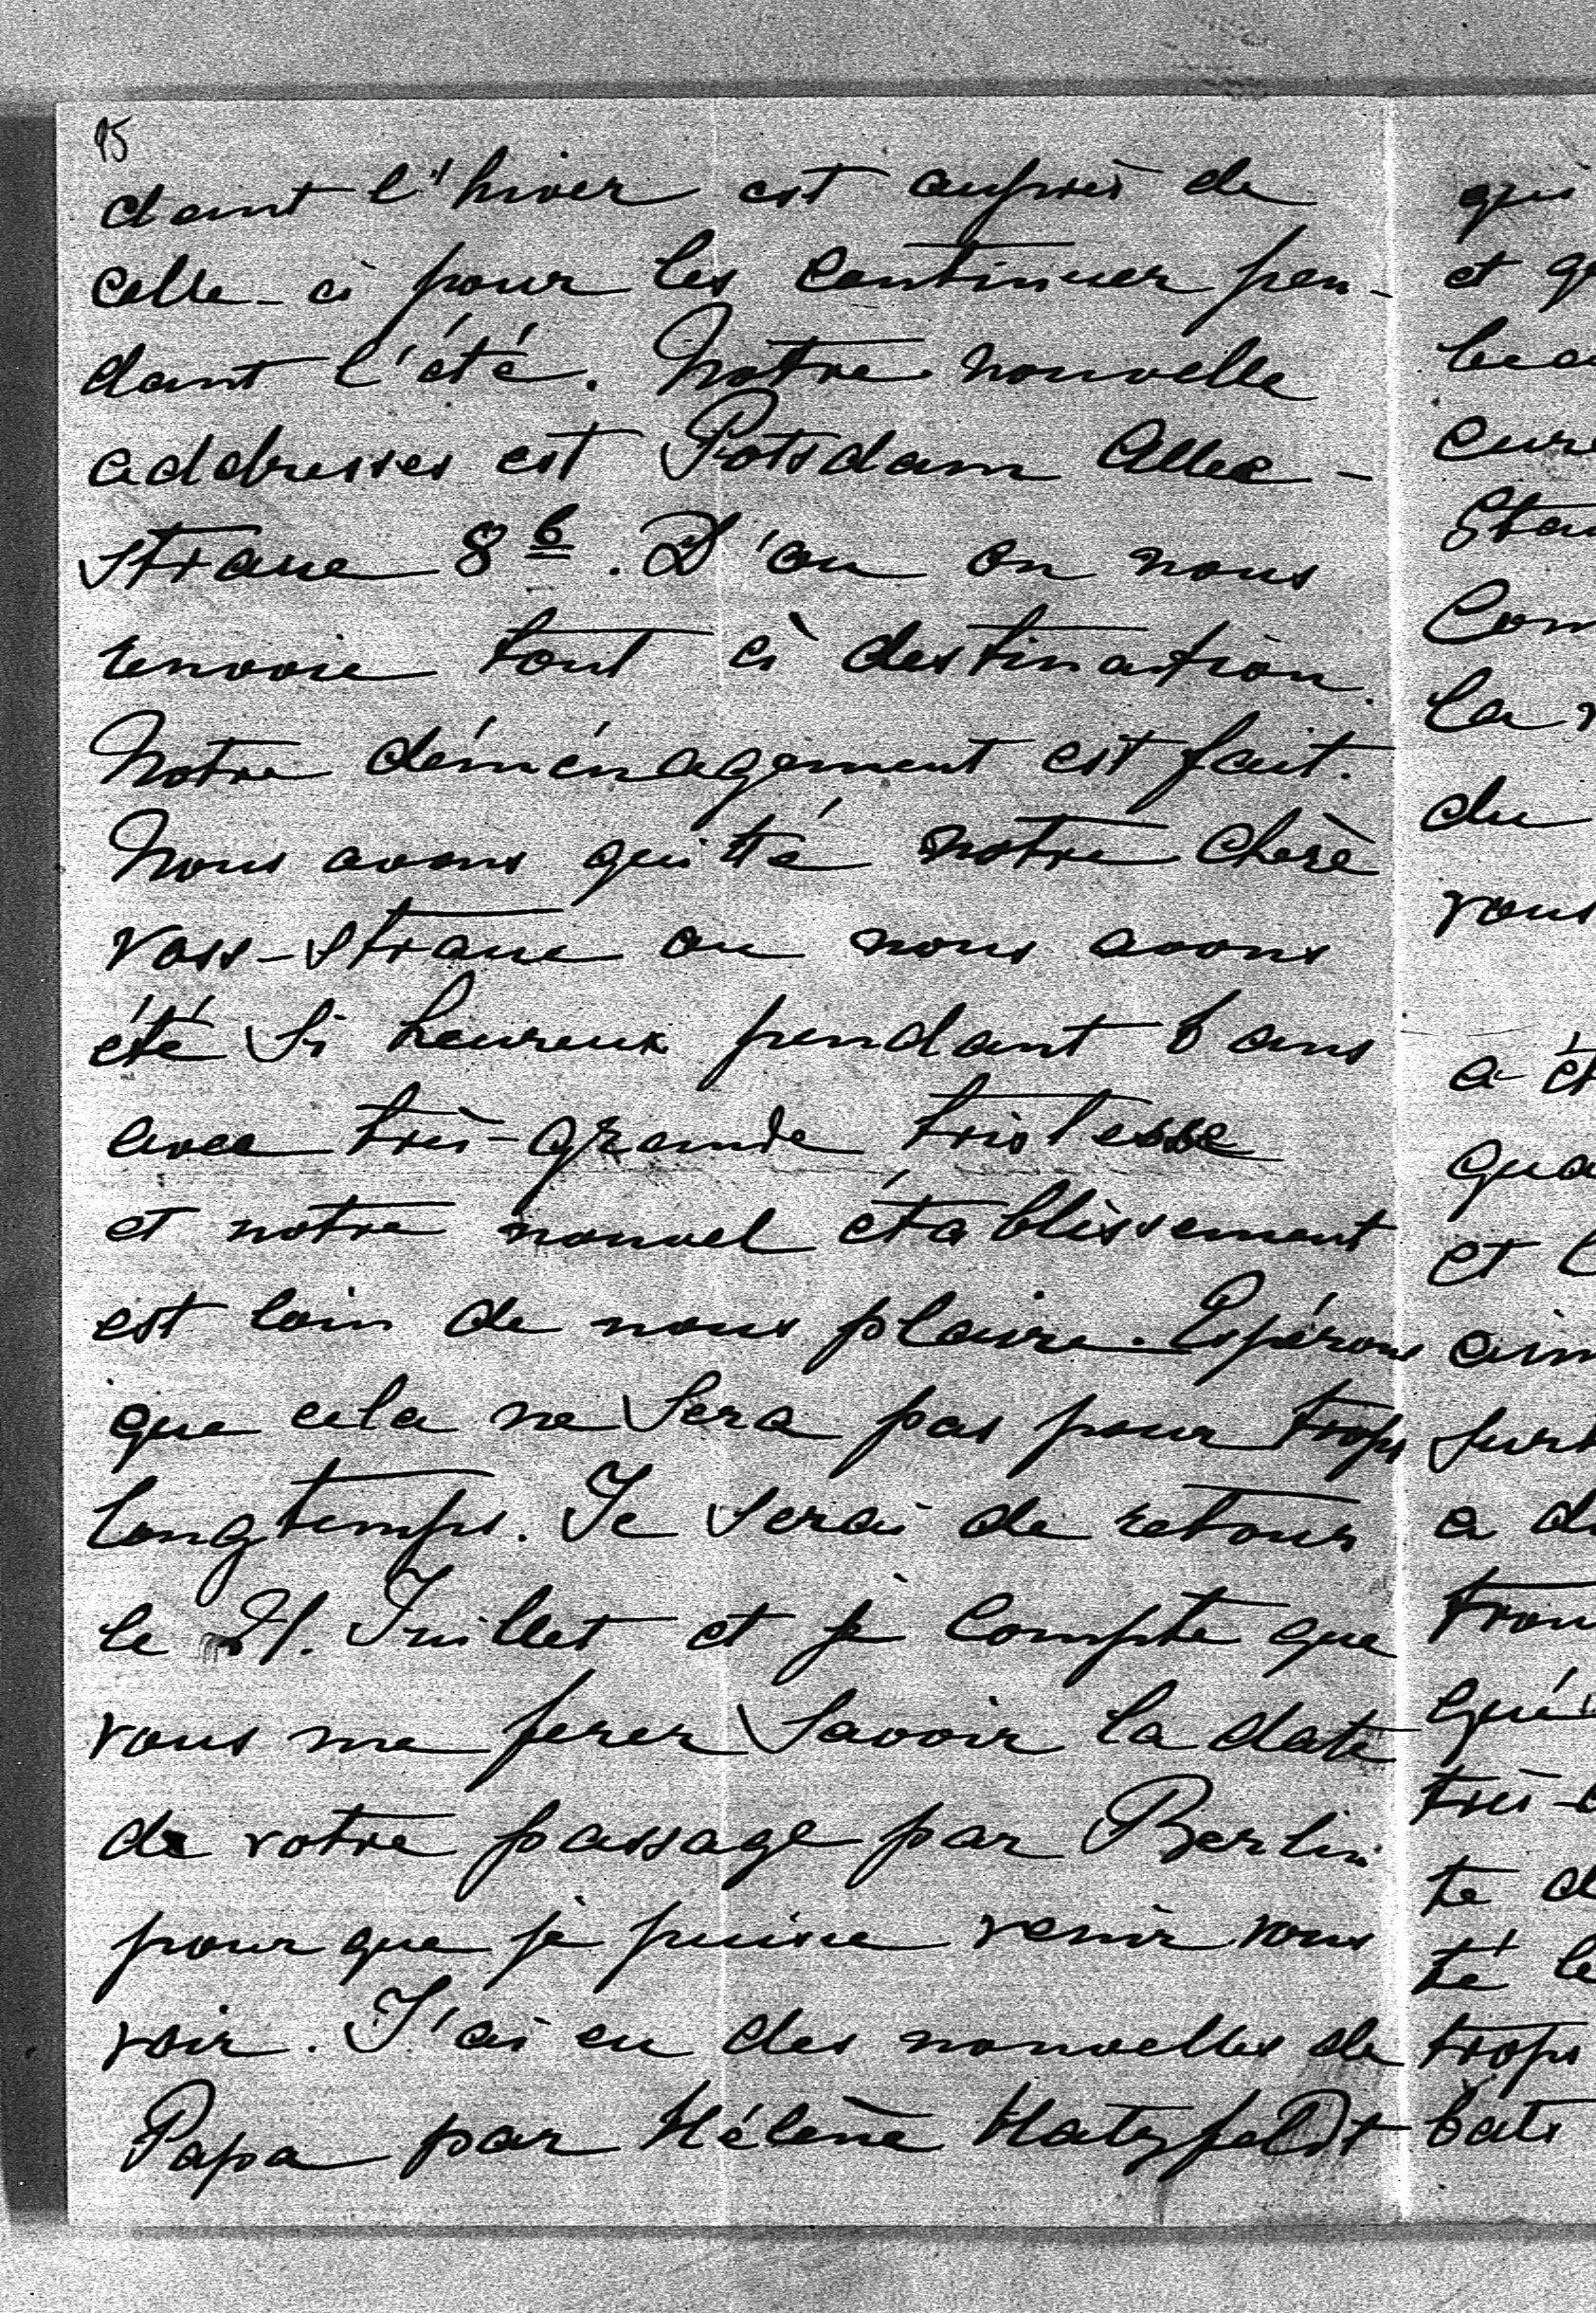 95
dant l'hiver est auprès de
celle-ci pour les continuer pen-
dant l'été. Notre nouvelle
addresses est Potsdam Allee-
strasse 8 b. D'ou on nous
renvoie tout à destination.
Notre déménagement est fait.
Nous avons quitté notre chère
Voss-strasse ou nous avons
été si heureux pendant 6 ans
avec très-grande tristesse
et notre nouvel établissement
est loin de nous plaire. Espérons
que cela ne sera pas pour trops
longtemps. Je serai de retour
le 21. Juillet et je compte que
vous me ferez savoir la date
de votre passage par Berlin
pour que je puisse venir vous
voir. J'ai eu des nouvelles de
Papa par Hélène Hatzfeldt
qui
et
la
du
vous
et
a
trops
bats